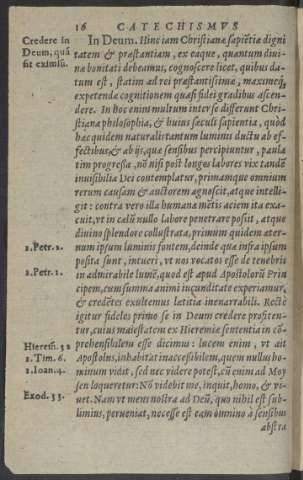 16 CATECHISMVS
Credere in
Deum, quã
sit eximiũ.
In Deum. Hinc iam Christianæ sapiẽtiæ digni
tatem & præstantiam, ex eaque, quantum diui-
næ bonitati debeamus, cognoscere licet, quibus da-
tum est, statim ad rei præstantissimæ, maximeq́;
expetendæ cognitionem quasi fidei gradibus ascen-
dere. In hoc enim multum inter se differunt Chri-
stiana philosophia, & huius sæculi sapientia, quòd
hæc quidem naturalis tantum luminis ductu ab ef-
fectibus, & ab ijs, quæ sensibus percipiuntur, paula
tim progressa, nõ nisi post longos labores vix tandẽ
inuisibilia Dei contemplatur, primamque omnium
rerum causam & auctorem agnoscit, atque intelli-
git: contra verò illa humanæ mẽtis aciem ita exa-
cuit, vt in cælũ nullo labore penetrare possit, atque
diuino splendore collustrata, primum quidem æter-
num ipsum luminis fontem, deinde quæ infra ipsum
posita sunt, intueri, vt nos vocatos esse de tenebris
in admirabile lumẽ, quod est apud Apostolorũ Prin
cipem, cum summa animi iucunditate experiamur,
& credẽtes exultemus lætitia inenarrabili. Rectè
igitur fideles primò se in Deum credere profiten-
tur, cuius maiestatem ex Hieremiæ sententia in cõ-
prehensibilem esse dicimus: lucem enim, vt ait
Apostolus, inhabitat inaccessibilem, quem nullus ho-
minum vidit, sed nec videre potest, cũ enim ad Moy
sen loqueretur: Nõ videbit me, inquit, homo, & vi-
uet. Nam vt mens nostra ad Deũ, quo nihil est sub-
limius, perueniat, necesse est eam omnino à sensibus
abstra
1. Petr. 2.
1. Petr. 1.
Hierem. 32
1. Tim. 6.
1. Ioan. 4.
Exod. 33.